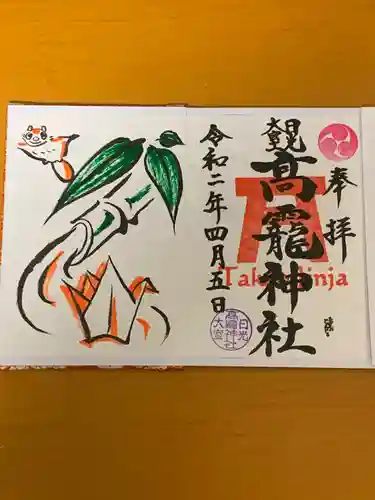 奉拝
日光
大室
高龗神社
Takaojinja
令和二年四月五日
日光
高龗神社
大室